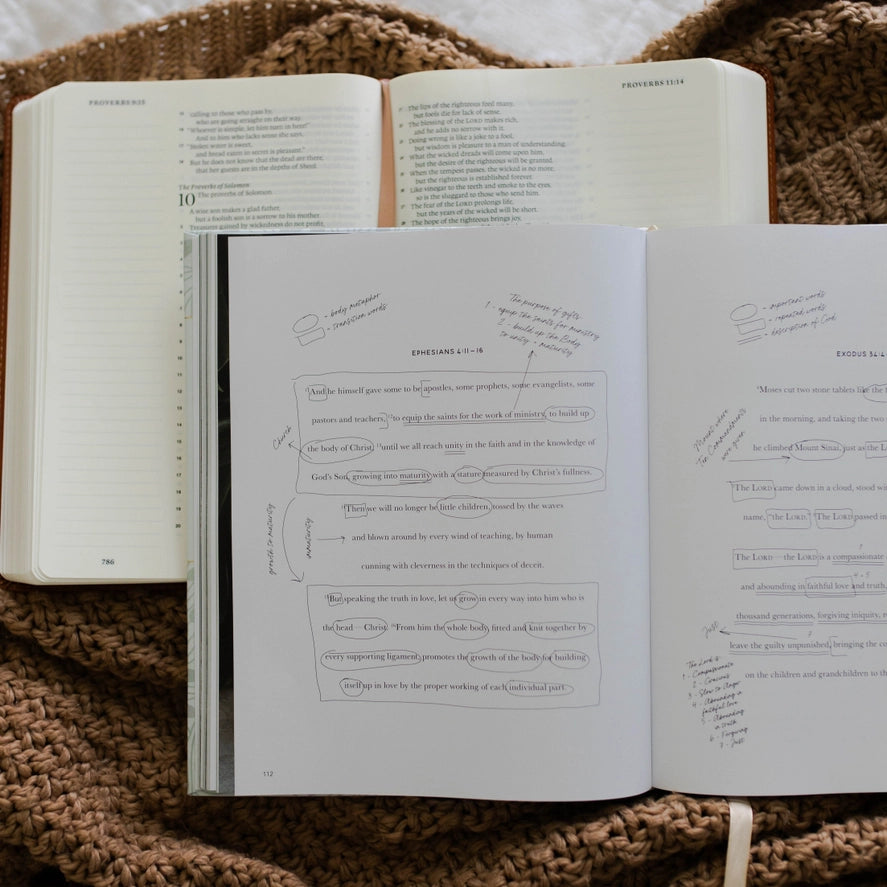 PROVERBS 9:15
15 calling to those who pass by,
who are going straight on their way,
16 "Whoever is simple, let him turn in here!"
And to him who lacks sense she says,
17 "Stolen water is sweet,
and bread eaten in secret is pleasant."
18 But he does not know that the dead are there,
that her guests are in the depths of Sheol.
The Proverbs of Solomon
10 The proverbs of Solomon.
A wise son makes a glad father,
but a foolish son is a sorrow to his mother.
2 Treasures gained by wickedness do not profit,
786
PROVERBS 11:14
21 The lips of the righteous feed many,
but fools die for lack of sense.
22 The blessing of the LORD makes rich,
and he adds no sorrow with it.
23 Doing wrong is like a joke to a fool,
but wisdom is pleasure to a man of understanding.
24 What the wicked dreads will come upon him,
but the desire of the righteous will be granted.
25 When the tempest passes, the wicked is no more,
but the righteous is established forever.
26 Like vinegar to the teeth and smoke to the eyes,
so is the sluggard to those who send him.
27 The fear of the LORD prolongs life,
but the years of the wicked will be short.
28 The hope of the righteous brings joy,
- body metaphor
- transition words
The purpose of gifts
1 - equip the saints for ministry
2 - build up the Body
to unity + maturity
EPHESIANS 4:11–16
11 And he himself gave some to be apostles, some prophets, some evangelists, some
pastors and teachers, 12 to equip the saints for the work of ministry, to build up
Church
the body of Christ, 13 until we all reach unity in the faith and in the knowledge of
God's Son, growing into maturity with a stature measured by Christ's fullness.
14 Then we will no longer be little children, tossed by the waves
growth to maturity
immaturity
and blown around by every wind of teaching, by human
cunning with cleverness in the techniques of deceit.
15 But speaking the truth in love, let us grow in every way into him who is
the head — Christ. 16 From him the whole body, fitted and knit together by
every supporting ligament, promotes the growth of the body for building
itself up in love by the proper working of each individual part.
112
- important words
- repeated words
- description of God
EXODUS 34:4
4 Moses cut two stone tablets like the
in the morning, and taking the two
Mount where
Ten Commandments
were given
he climbed Mount Sinai, just as the L
5 The LORD came down in a cloud, stood wi
name, "the LORD." 6 The LORD passed in
The LORD — the LORD is a compassionate
4 + 5
and abounding in faithful love and truth,
thousand generations, forgiving iniquity, r
Just
7
leave the guilty unpunished, bringing the co
on the children and grandchildren to th
The Lord is:
1 - Compassionate
2 - Gracious
3 - Slow to Anger
4 - Abounding in
faithful love
5 - Abounding
in truth
6 - Forgiving
7 - Just